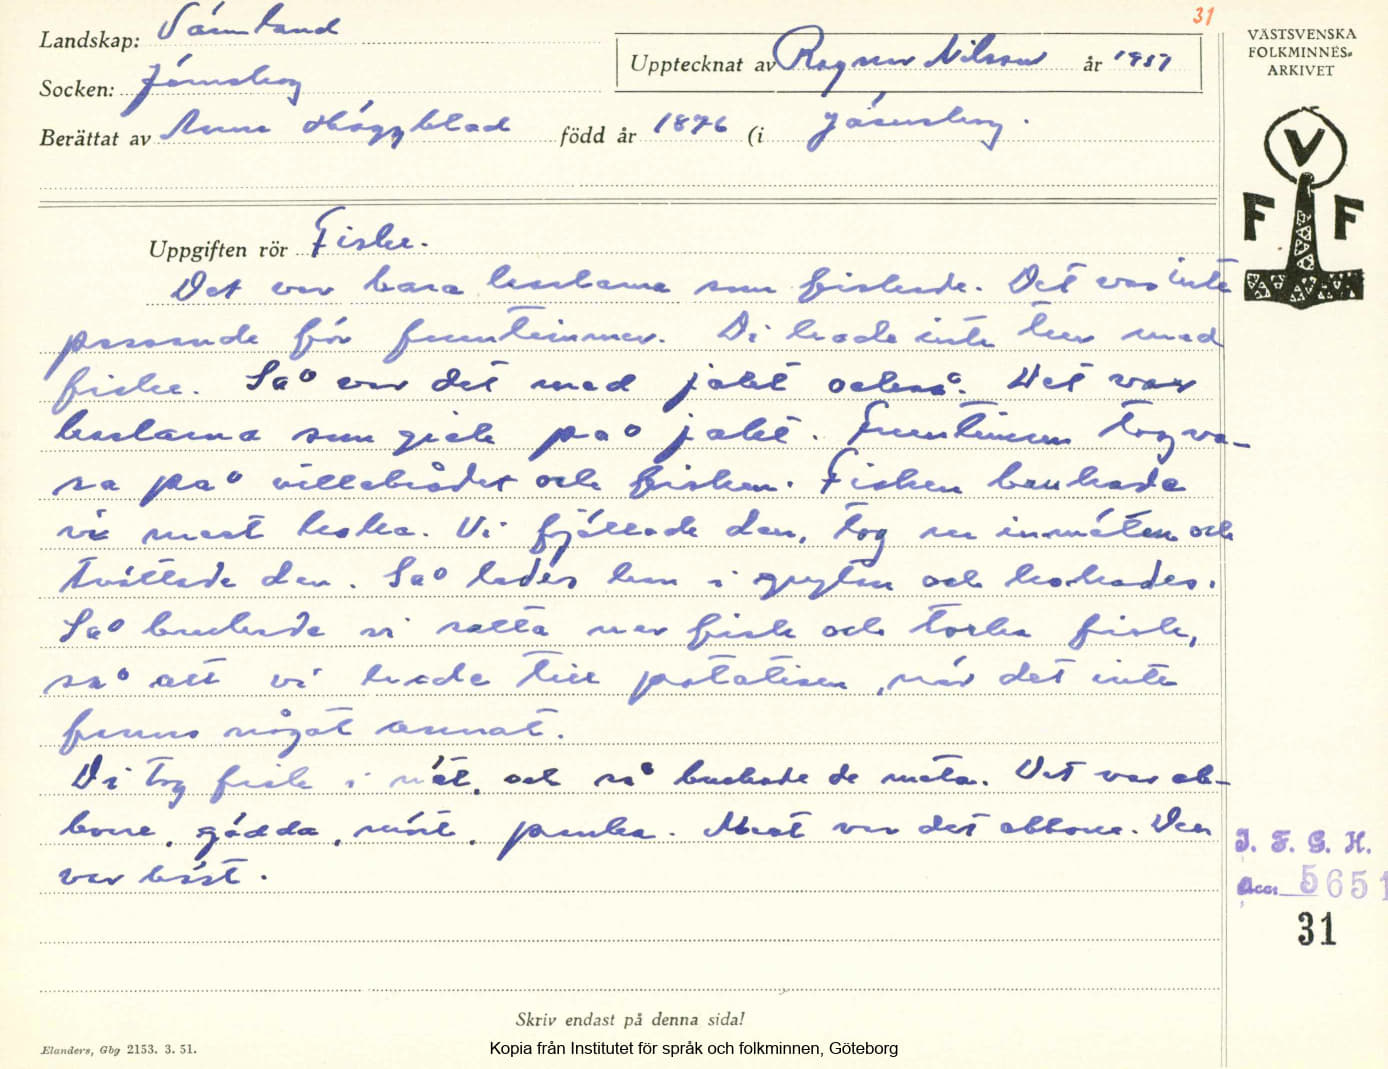 31
Landskap: Värmland
Socken: Järnskog
Upptecknat av Ragnar Nilsson år 1957
Berättat av Anna Häggblad född år 1876 (i Järnskog.
VÄSTSVENSKA
FOLKMINNES-
ARKIVET
V
F F
Uppgiften rör Fiske.
Det var bara karlarna som fiskade. Det var inte
passande för fruntimmer. Di hade inte tur med
fiske. Så var det med jakt också. Det var
karlarna som gick på jakt. Fruntimren tog va-
ra på villebrådet och fisken. Fisken brukade
vi mest koka. Vi fjällade den, tog ur inmäten och
tvättade den. Så lades han i grytan och kokades.
Så brukade vi salta ner fisk och torka fisk,
så att vi hade till potatisen, när det inte
fanns något annat.
Di tog fisk i nät, och så brukade de meta. Det var ab-
borre, gädda, mört, panka. Mest var det abborre. Den
var bäst.
I. F. G. H.
Acc. 5651
31
Skriv endast på denna sida!
Elanders, Gbg 2153. 3. 51.
Kopia från Institutet för språk och folkminnen, Göteborg